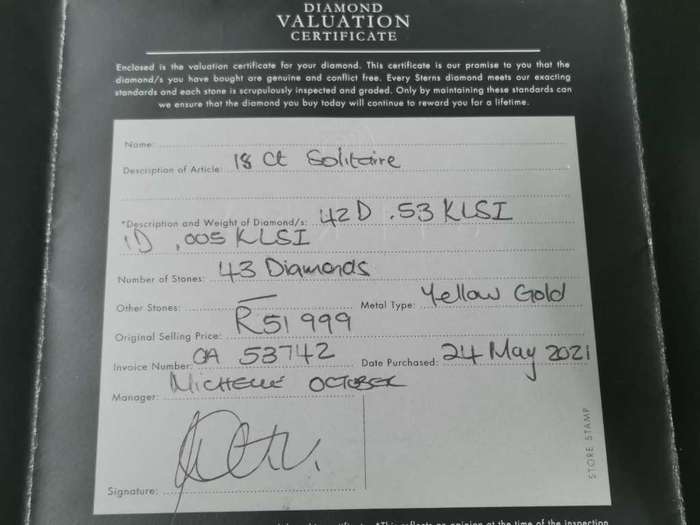 DIAMOND
VALUATION
CERTIFICATE
Enclosed is the valuation certificate for your diamond. This certificate is our promise to you that the
diamond/s you have bought are genuine and conflict free. Every Sterns diamond meets our exacting
standards and each stone is scrupulously inspected and graded. Only by maintaining these standards can
we ensure that the diamond you buy today will continue to reward you for a lifetime.
Name:
Description of Article: 18 Ct Solitaire
*Description and Weight of Diamond/s: 42D .53 KLSI
1D .005 KLSI
Number of Stones: 43 Diamonds
Other Stones: — Metal Type: Yellow Gold
Original Selling Price: R51 999
Invoice Number: OA 53742 Date Purchased: 24 May 2021
Manager: MICHELLE OCTOBER
Signature:
STORE STAMP
opinion at the time of the inspection